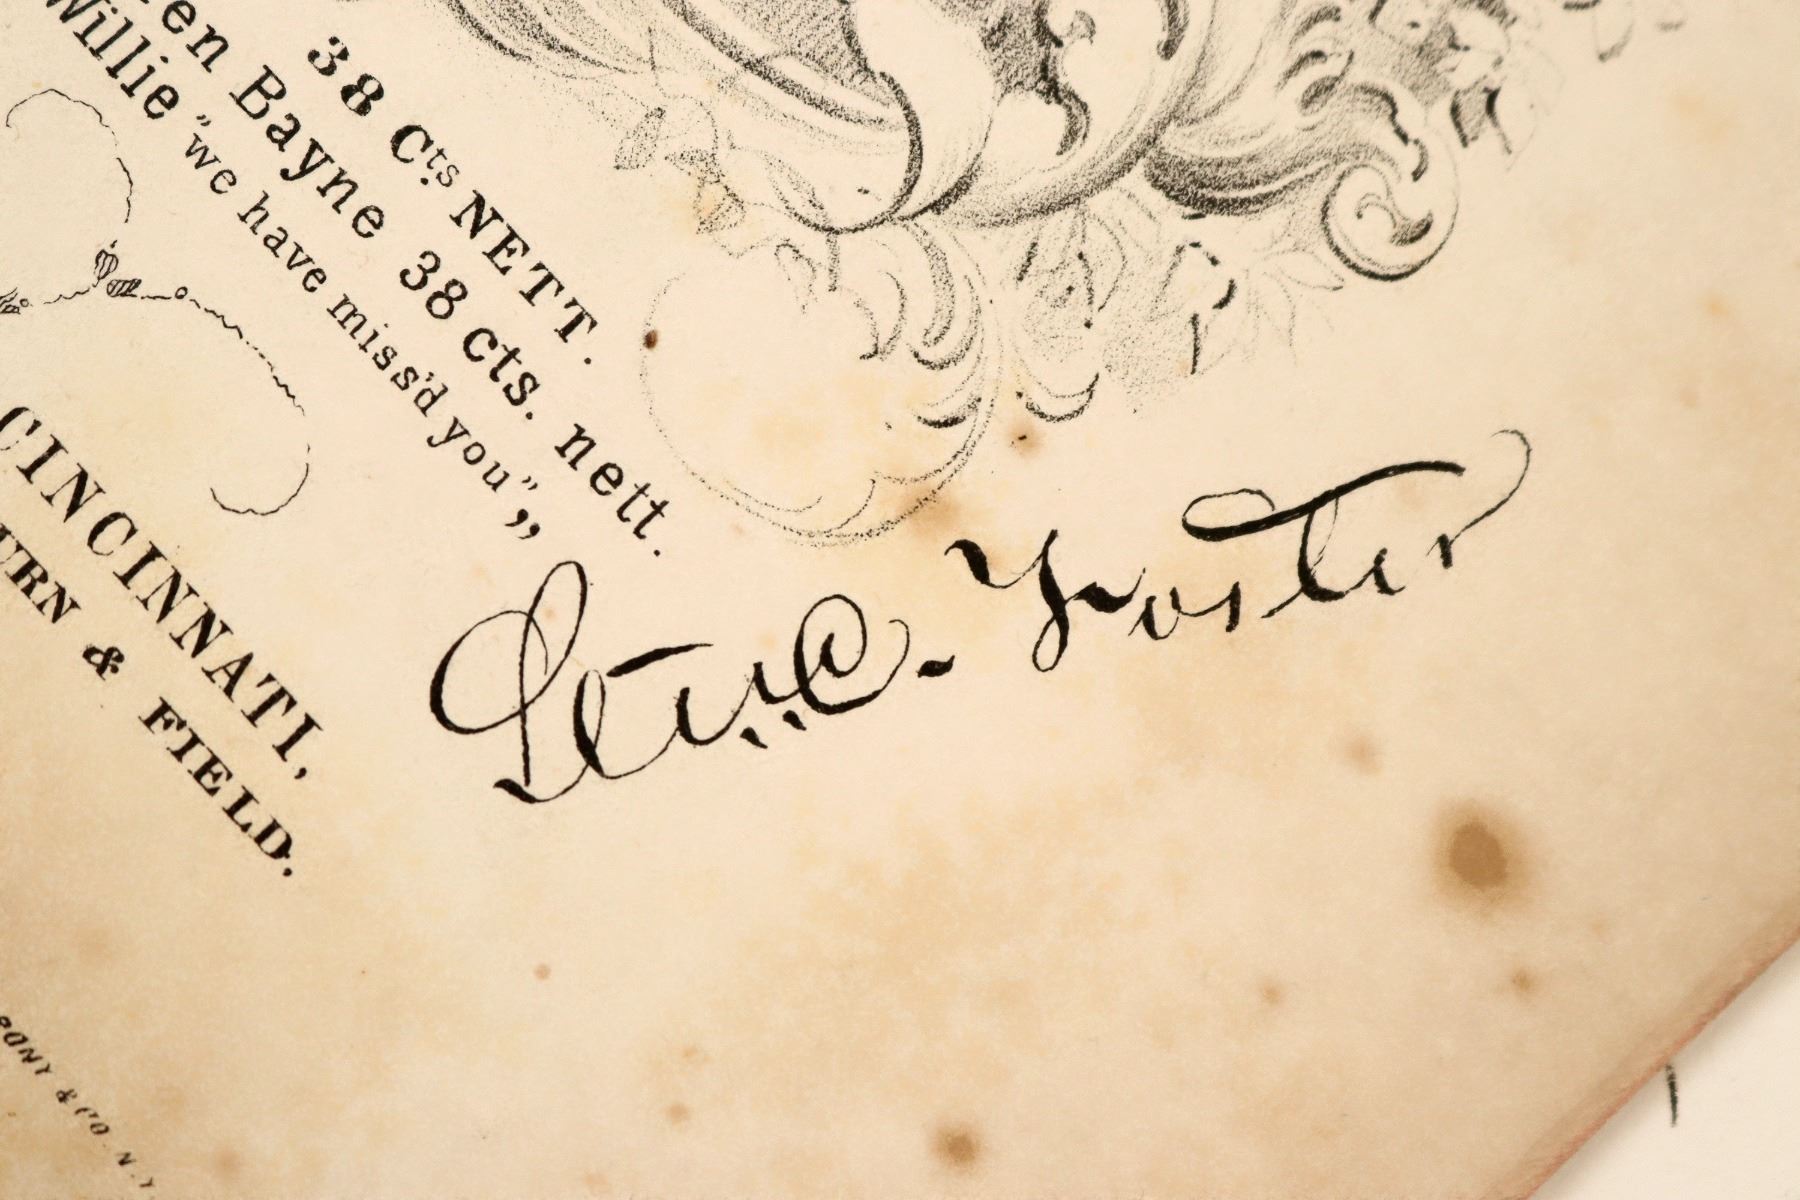 38 Cts NETT.
en Bayne 38 cts. nett.
Willie "we have miss'd you",,
CINCINNATI,
URN & FIELD.
Ste.. C. Foster
PONY & CO. N.Y.